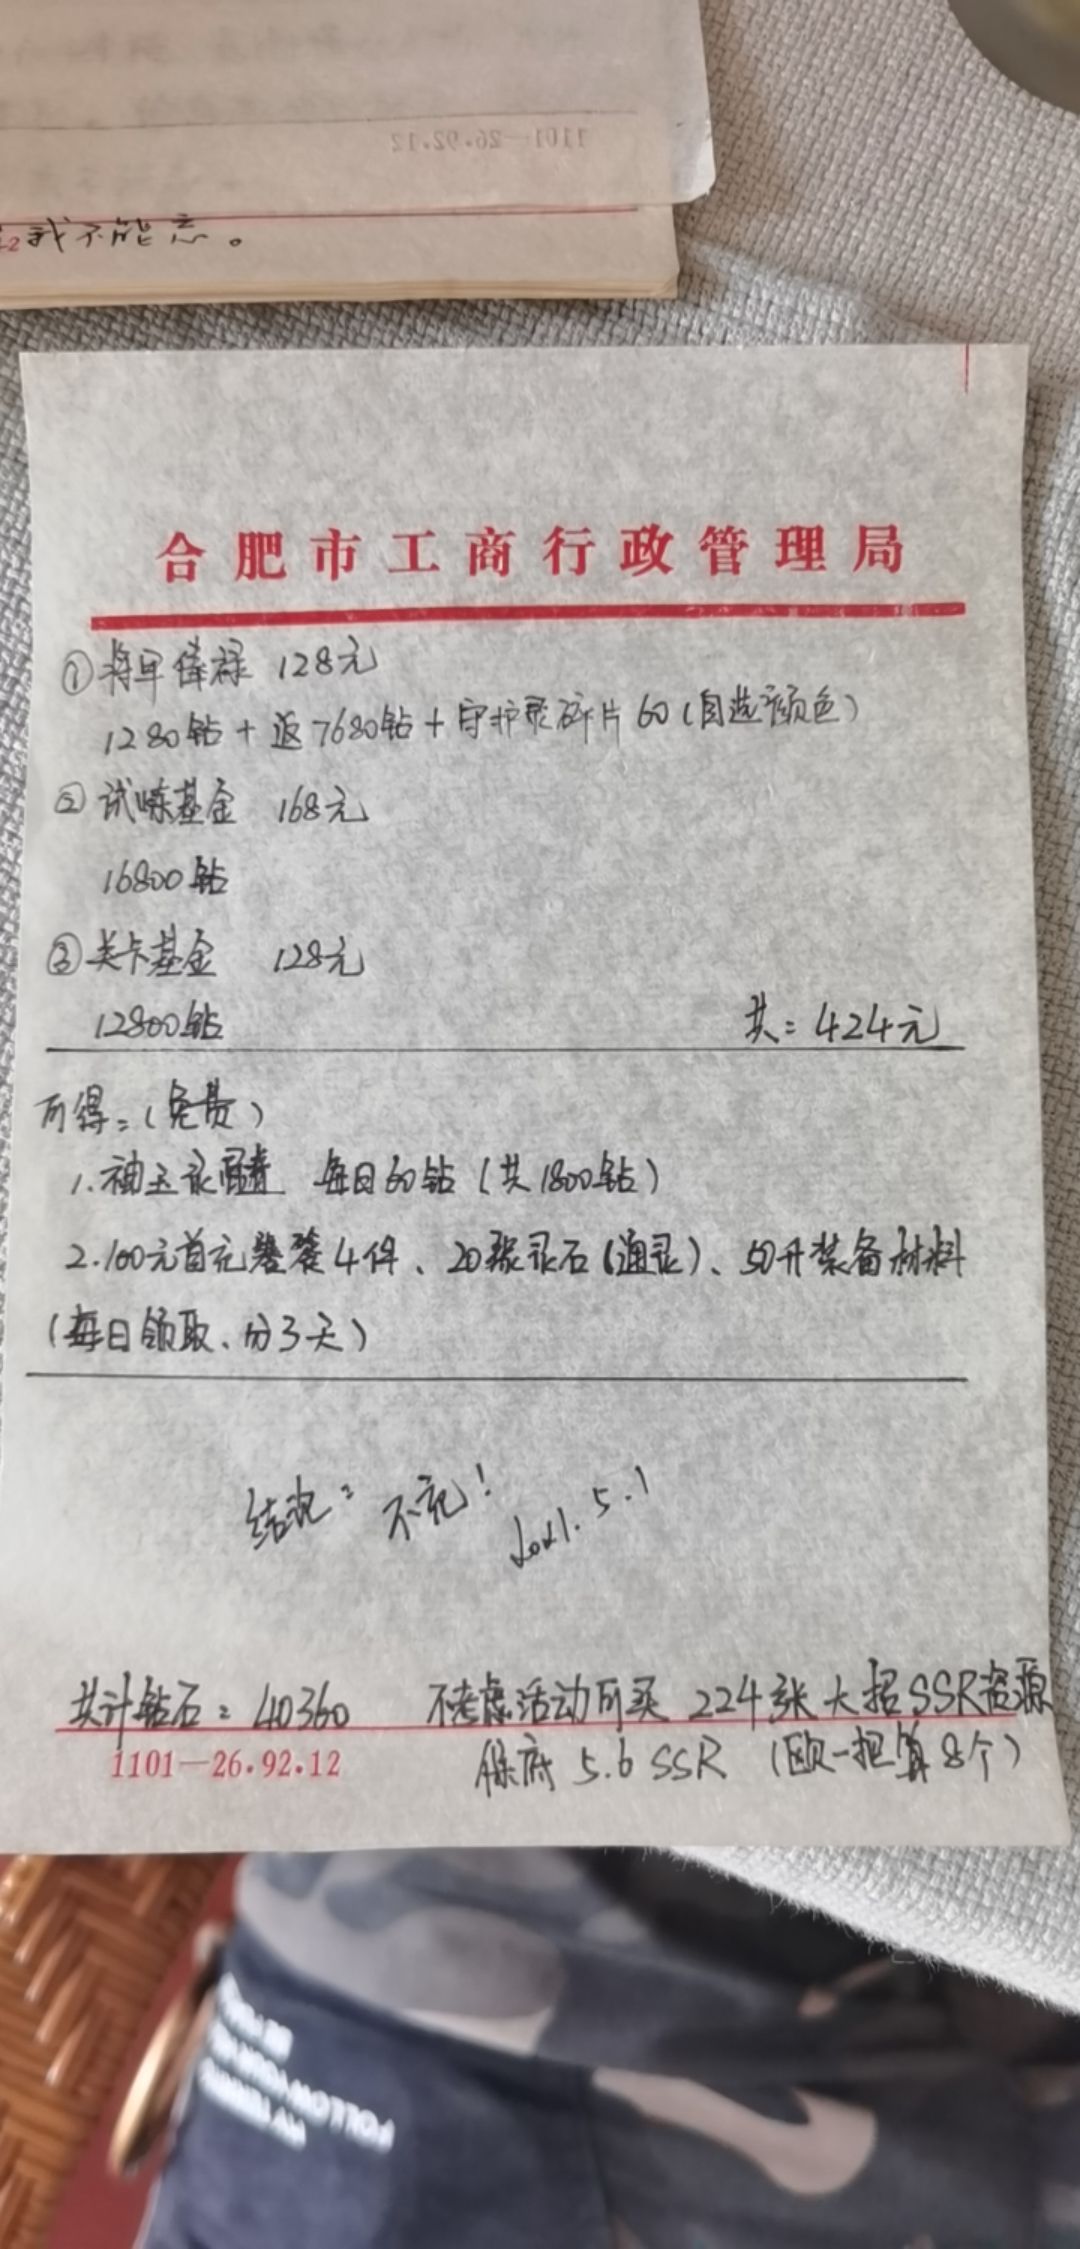 1101—26.92.12
我不能忘。
合肥市工商行政管理局
①将军俸禄 128元
1280钻+返7680钻+守护灵碎片60(自选颜色)
②试炼基金 168元
16800钻
③关卡基金 128元
12800钻 共:424元
所得:(免费)
1.神玉录髓 每日60钻(共1800钻)
2.100元首充 4件、20张灵石(通灵)、50升装备材料
(每日领取、分3天)
结论:不充! 2021.5.1
共计钻石:40360 不考虑活动所买224张大招SSR资源
1101—26.92.12 保底5.6SSR (欧一把算8个)
FOLLOW YOUR